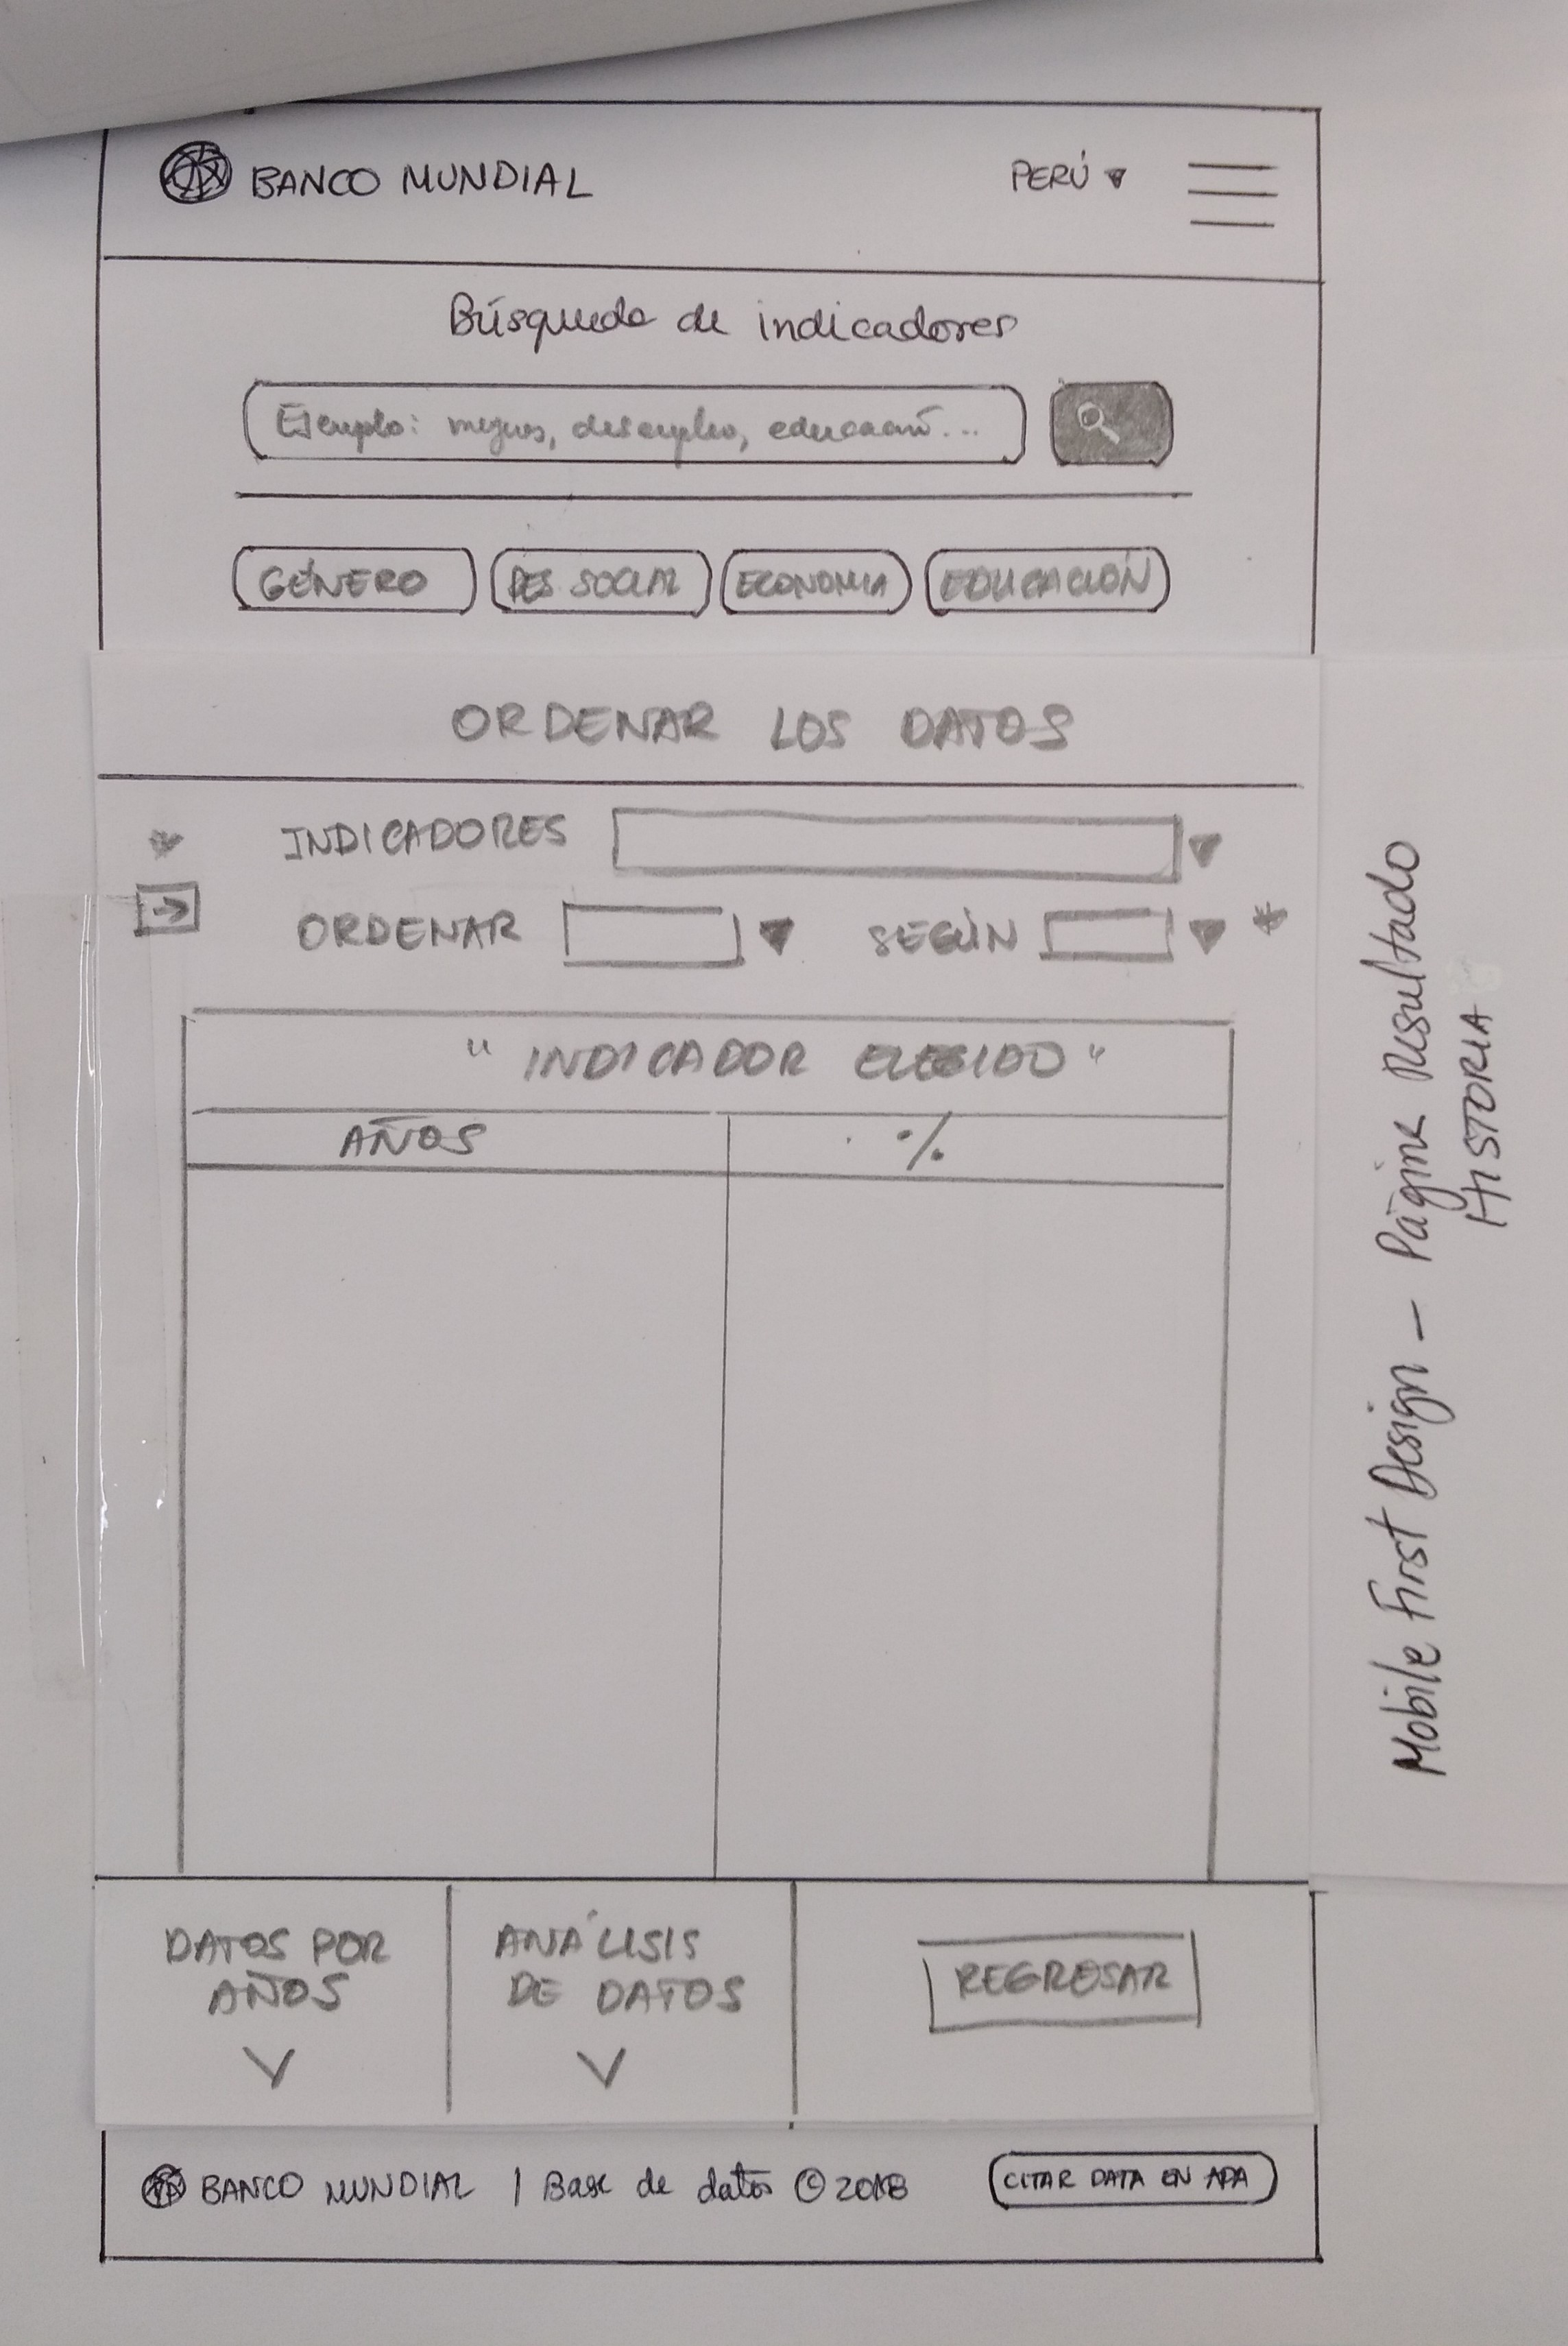 BANCO MUNDIAL
PERÚ
Búsqueda de indicadores
Ejemplo: mujeres, desempleo, educación...
GÉNERO
DES. SOCIAL
ECONOMIA
EDUCACIÓN
ORDENAR LOS DATOS
* INDICADORES
ORDENAR
SEGÚN
*
"INDICADOR ELEGIDO"
AÑOS
%
DATOS POR
AÑOS
ANÁLISIS
DE DATOS
REGRESAR
BANCO MUNDIAL | Base de datos © 2018
CITAR DATA EN APA
Mobile First Design - Página Resultado
HISTORIA